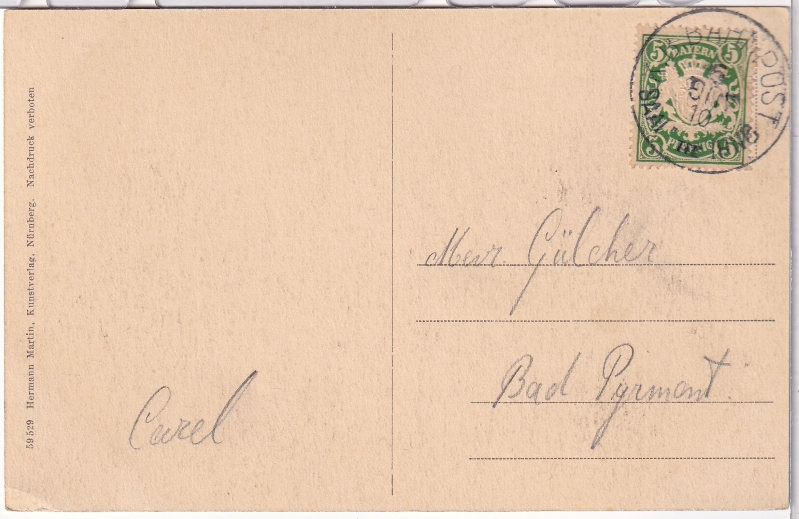 59529 Hermann Martin, Kunstverlag, Nürnberg. Nachdruck verboten
5 BAYERN 5
5 PFENNIG 5
BAHNPOST
10
Gülcher
Bad Pyrmont
Carel